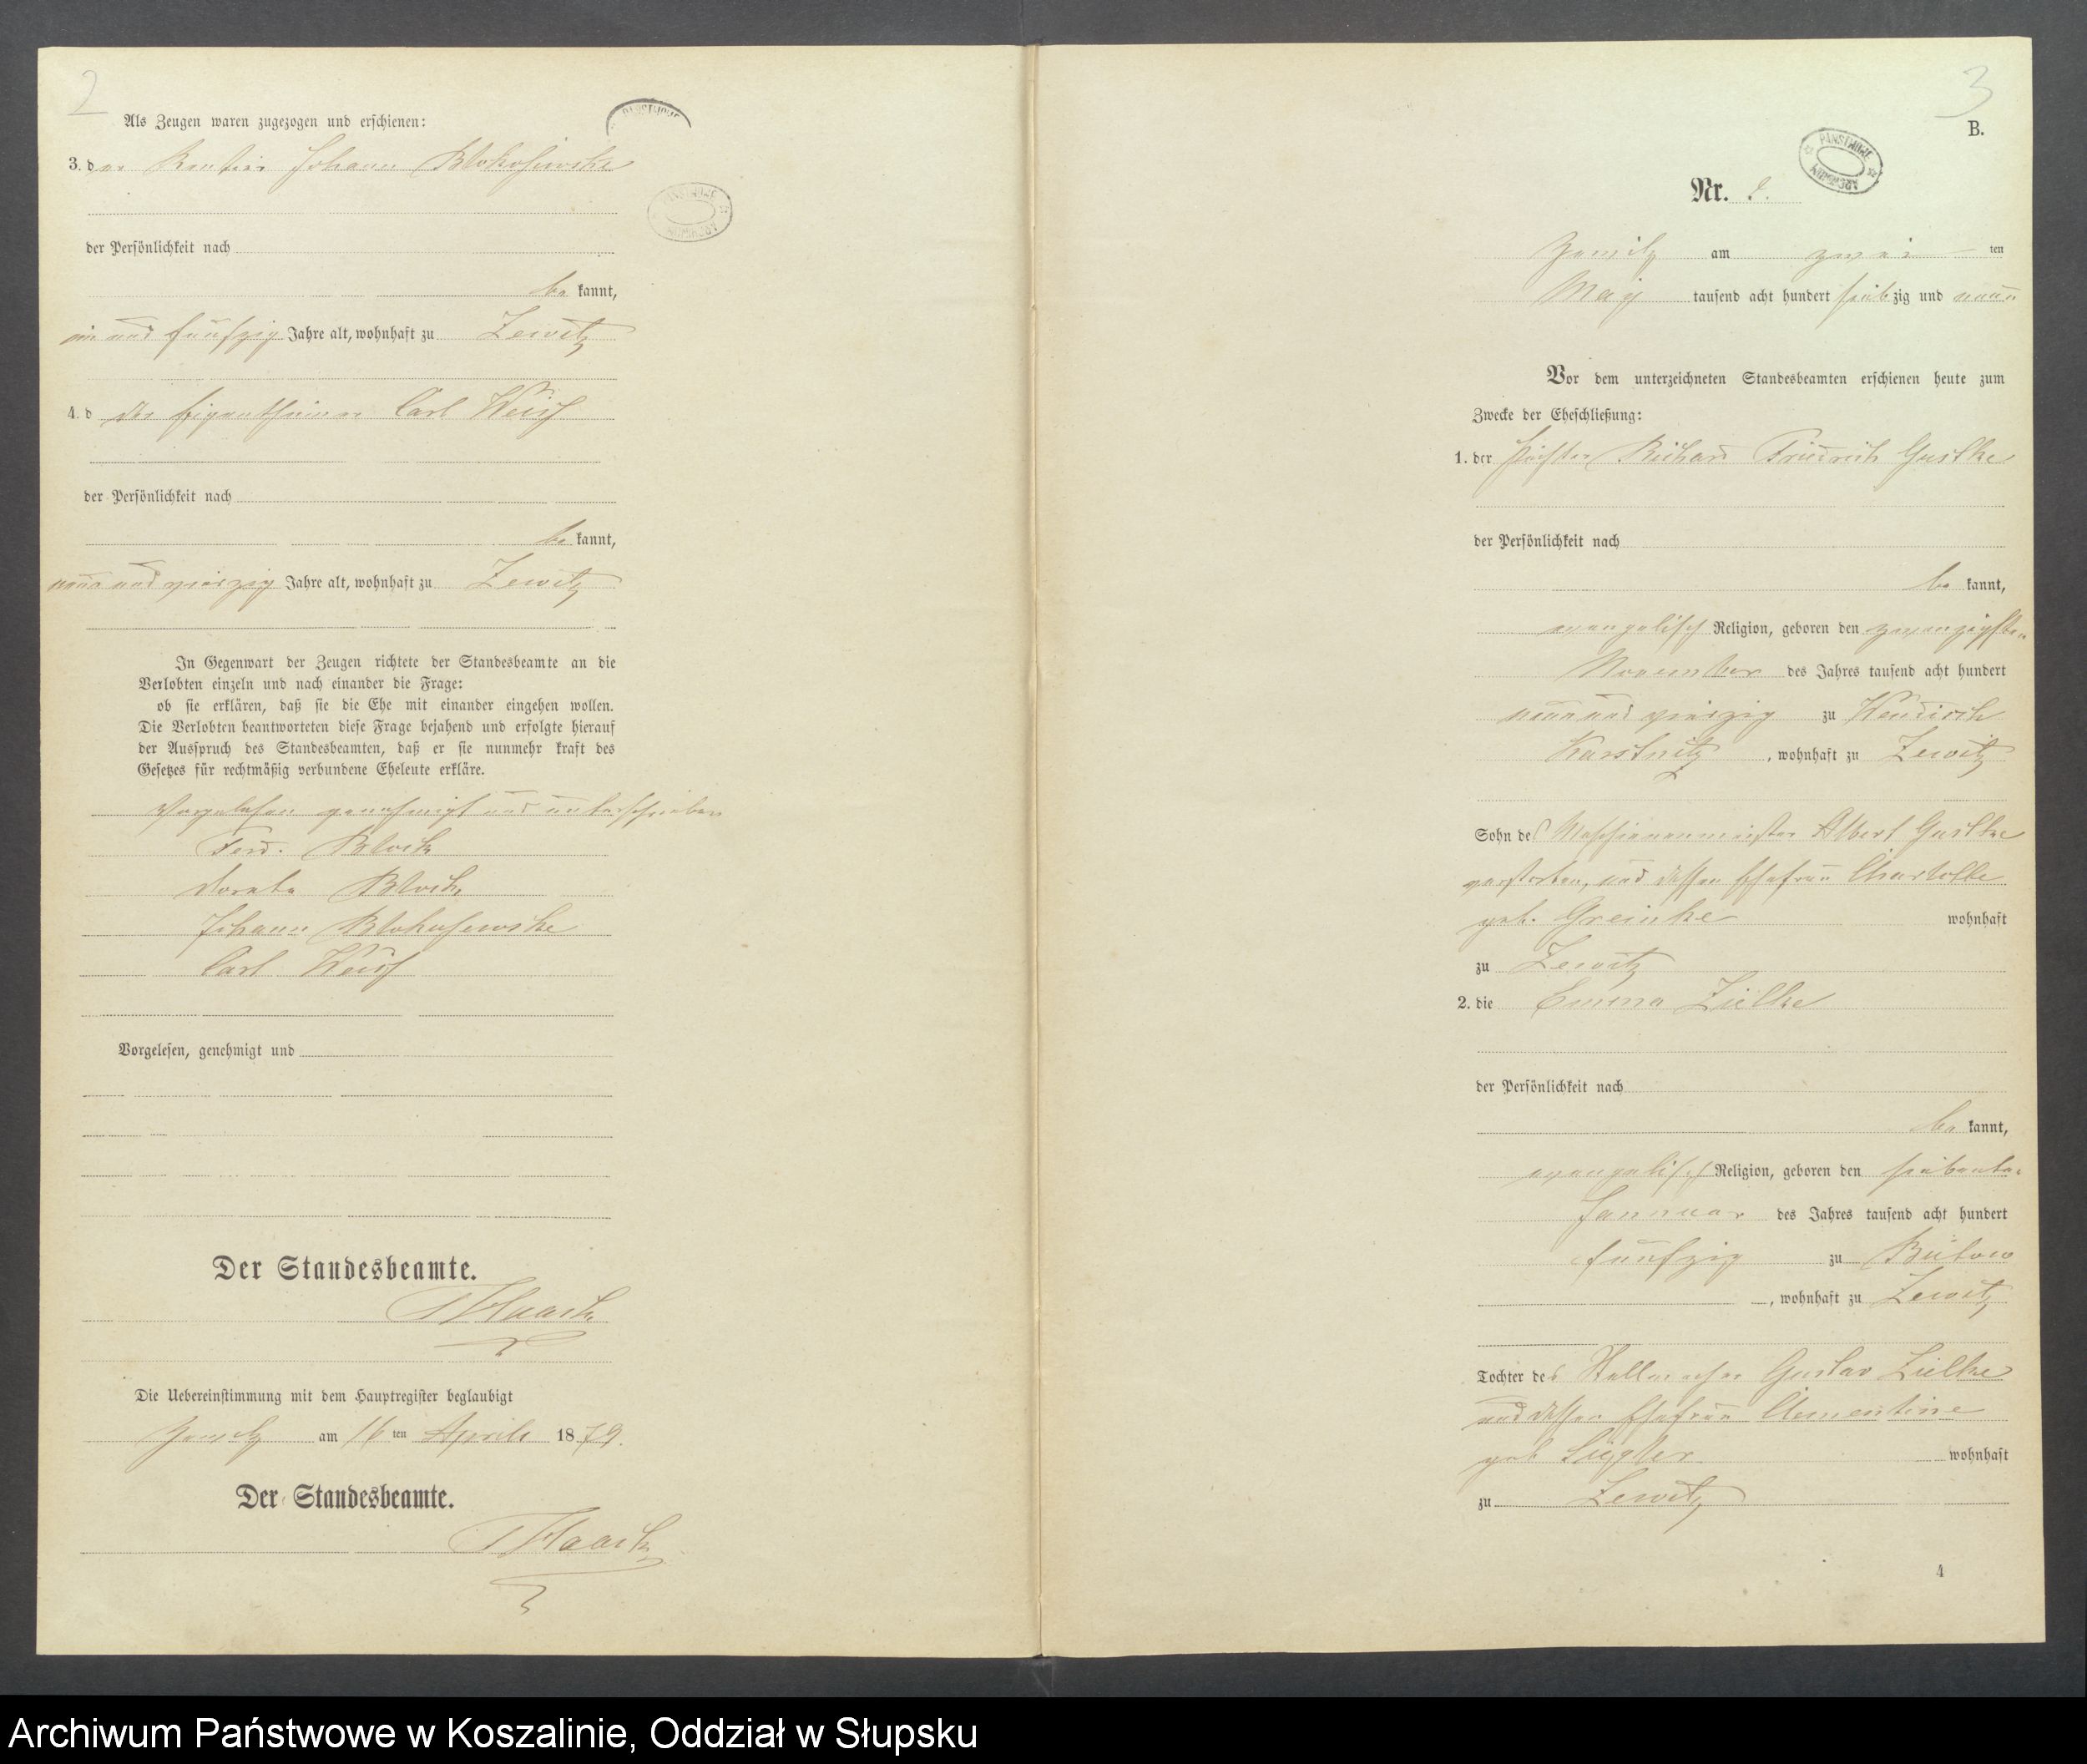 2
Als Zeugen waren zugezogen und erschienen:
3. der Rentier Johann
der Persönlichkeit nach
be kannt,
ein und fünfzig Jahre alt, wohnhaft zu Zewitz
4. d der Eigenthümer Carl Weiß
der Persönlichkeit nach
be kannt,
neun und vierzig Jahre alt, wohnhaft zu Zewitz
In Gegenwart der Zeugen richtete der Standesbeamte an die
Verlobten einzeln und nach einander die Frage:
ob sie erklären, daß sie die Ehe mit einander eingehen wollen.
Die Verlobten beantworteten diese Frage bejahend und erfolgte hierauf
der Ausspruch des Standesbeamten, daß er sie nunmehr kraft des
Gesetzes für rechtmäßig verbundene Eheleute erkläre.
Vorgelesen genehmigt und unterschrieben
Ferd. Block
Block
Johann
Carl Weiß
Vorgelesen, genehmigt und
Der Standesbeamte.
Die Uebereinstimmung mit dem Hauptregister beglaubigt
am 16 ten Aprils 1879.
Der Standesbeamte.
3
B.
PAŃSTWOWE ARCHIWUM
Nr. 2.
am zwei ten
May tausend acht hundert siebzig und neun
Vor dem unterzeichneten Standesbeamten erschienen heute zum
Zwecke der Eheschließung:
1. der Richard Friedrich Gustke
der Persönlichkeit nach
be kannt,
evangelisch Religion, geboren den zwanzigsten
November des Jahres tausend acht hundert
neun und vierzig zu Wendisch
Karstnitz, wohnhaft zu Zewitz
Sohn des Maschienenmeister Albert Gustke
verstorben, und dessen Ehefrau Charlotte
geb. Greinke wohnhaft
zu Zewitz
2. die Emma Zielke
der Persönlichkeit nach
be kannt,
evangelisch Religion, geboren den siebenten
Januar des Jahres tausend acht hundert
fünfzig zu Bütow
, wohnhaft zu Zewitz
Tochter des Stellmacher Gustav Zielke
und dessen Ehefrau Clementine
geb wohnhaft
zu Zewitz
4
Archiwum Państwowe w Koszalinie, Oddział w Słupsku